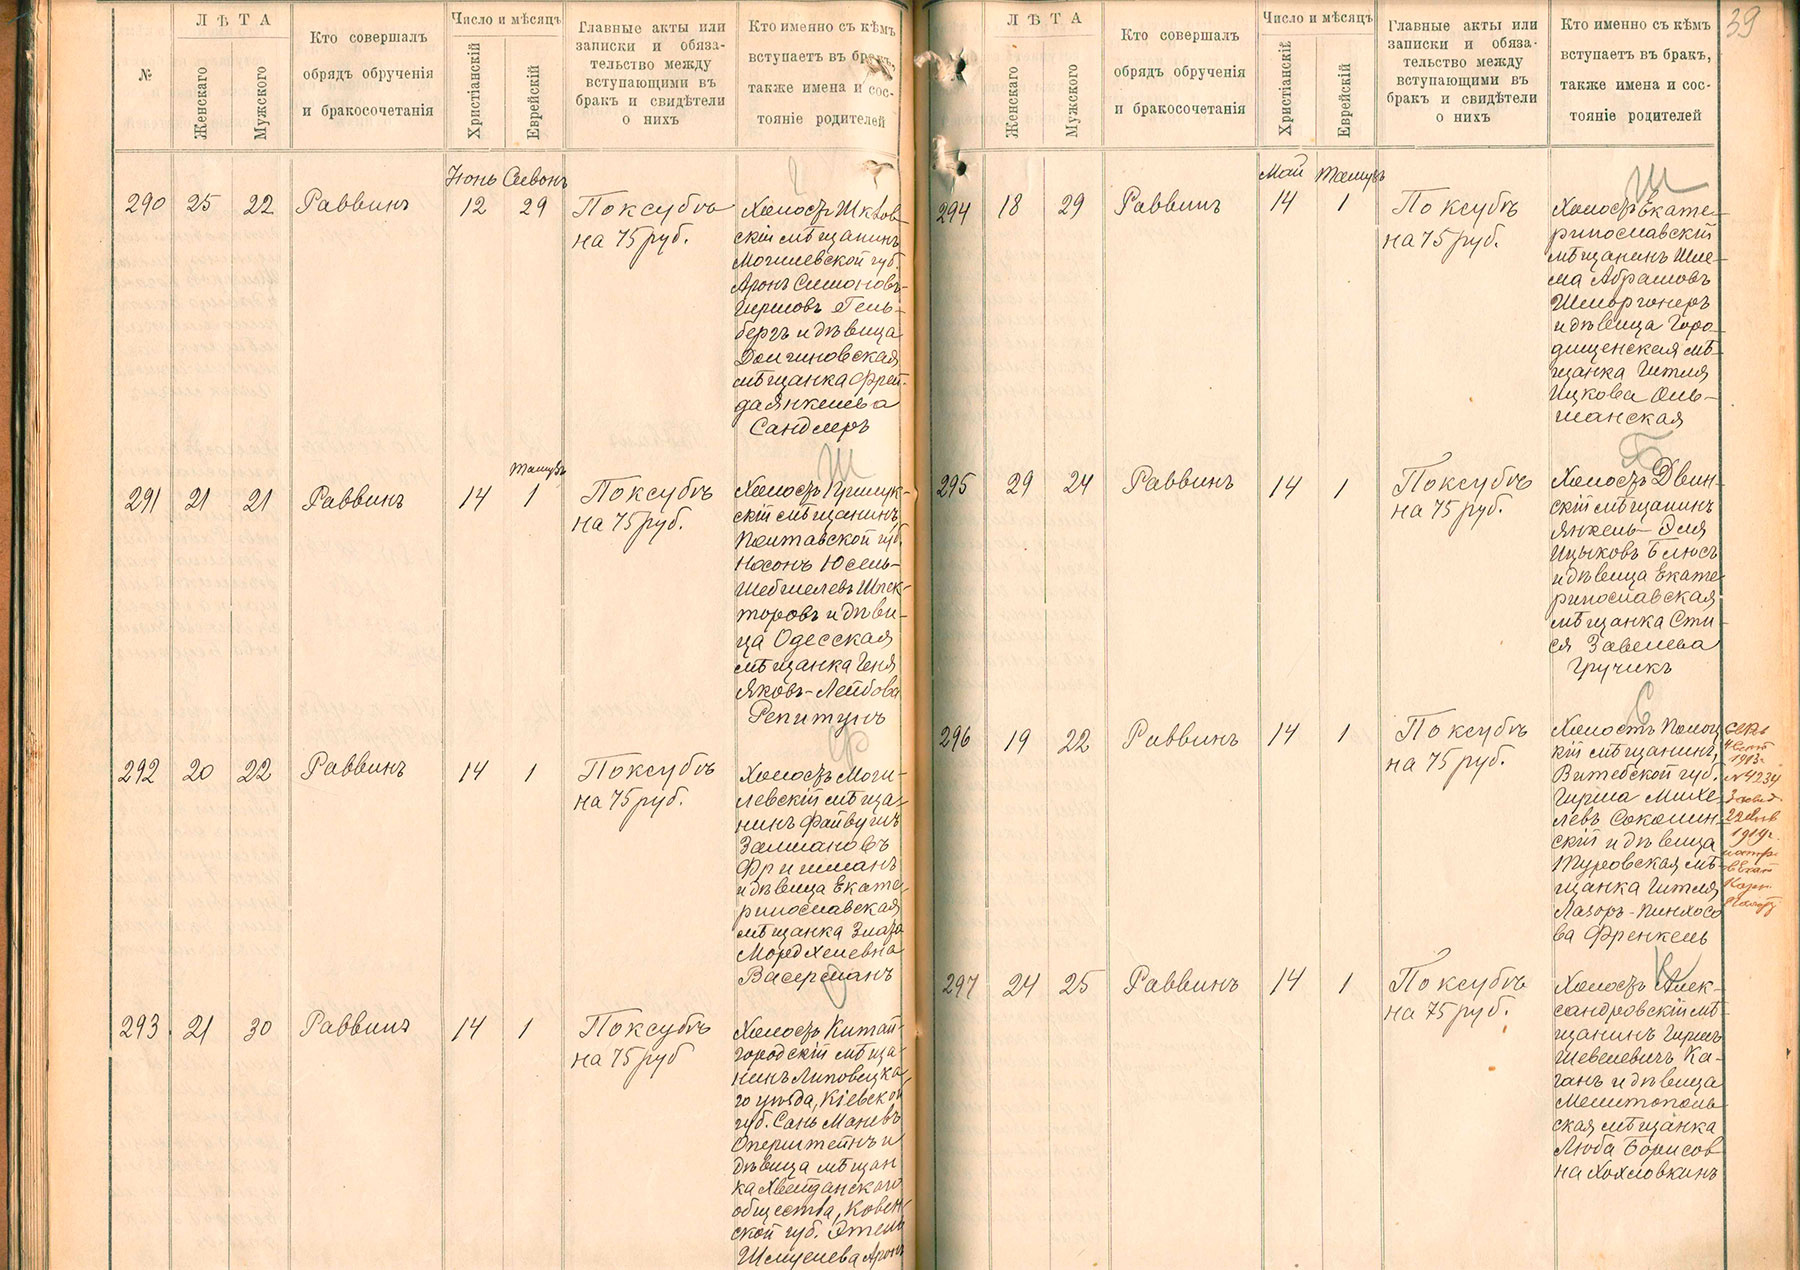 №
ЛѢТА
Женскаго
Мужского
Кто совершалъ
обрядъ обрученія
и бракосочетанія
Число и мѣсяцъ
Христіанскій
Еврейскій
Главные акты или
записки и обяза-
тельство между
вступающими въ
бракъ и свидѣтели
о нихъ
Кто именно съ кѣмъ
вступаетъ въ бракъ,
также имена и сос-
тояніе родителей
Июнь Сивонъ
290 25 22 Раввинъ 12 29
По ксубѣ
на 75 руб.
Холостъ Шклов-
скій мѣщанинъ
Могилевской губ.
Аронъ Симоновъ-
Гиршовъ Гель-
бергъ и дѣвица
Долгиновская
мѣщанка Фрей-
да Янкелева
Сандлеръ
Тамузъ
291 21 21 Раввинъ 14 1
По ксубѣ
на 75 руб.
Ш
Холостъ Прилук-
скій мѣщанинъ
Полтавской губ.
Носонъ Юсель-
Шебшелевъ Шпек-
торовъ и дѣви-
ца Одесская
мѣщанка Геня
Яковъ-Лейбова
Репитунъ
292 20 22 Раввинъ 14 1
По ксубѣ
на 75 руб.
Ф
Холостъ Моги-
левскій мѣща-
нинъ Файвушъ
Залмановъ
Фришманъ
и дѣвица Екате-
ринославская
мѣщанка Злата
Мордхелевна
Васерманъ
293. 21 30 Раввинъ 14 1
По ксубѣ
на 75 руб
О
Холостъ Китай-
городскій мѣща-
нинъ Липовецка-
го уѣзда, Кіевской
губ. Сань Маневъ
Оперштейнъ и
дѣвица мѣщан
ка Хвейданскаго
общества, Ковен-
ской губ. Этель
Шмуелева Аронъ
39
ЛѢТА
Женскаго
Мужского
Кто совершалъ
обрядъ обрученія
и бракосочетанія
Число и мѣсяцъ
Христіанскій
Еврейскій
Главные акты или
записки и обяза-
тельство между
вступающими въ
бракъ и свидѣтели
о нихъ
Кто именно съ кѣмъ
вступаетъ въ бракъ,
также имена и сос-
тояніе родителей
Май Тамузъ
294 18 29 Раввинъ 14 1
По ксубѣ
на 75 руб.
Ш
Холостъ Екате-
ринославскій
мѣщанинъ Шле-
ма Абрамовъ
Шморгонеръ
и дѣвица Горо-
дищенская мѣ-
щанка Гитля
Ицкова Оль-
шанская
295 29 24 Раввинъ 14 1
По ксубѣ
на 75 руб.
Б
Холостъ Двин-
скій мѣщанинъ
Янкель-Эля
Ицыковъ Блюсъ
и дѣвица Екате
ринославская
мѣщанка Сти-
ся Завелева
Гручикъ
296 19 22 Раввинъ 14 1
По ксубѣ
на 75 руб.
С
Холостъ Полоц
кій мѣщанинъ,
Витебской губ.
Гирша Михе-
левъ Соколин-
скій и дѣвица
Туровская мѣ-
щанка Гитля
Лазоръ-Пинхосо
ва Френкель
1913г.
№ 4234
1919г.
297 24 25 Раввинъ 14 1
По ксубѣ
на 75 руб.
К
Холостъ Алек-
сандровскій мѣ-
щанинъ Гиршъ
Шевелевичъ Ка-
ганъ и дѣвица
Мелитополь
ская мѣщанка
Люба Борисов
на Хохловкинъ